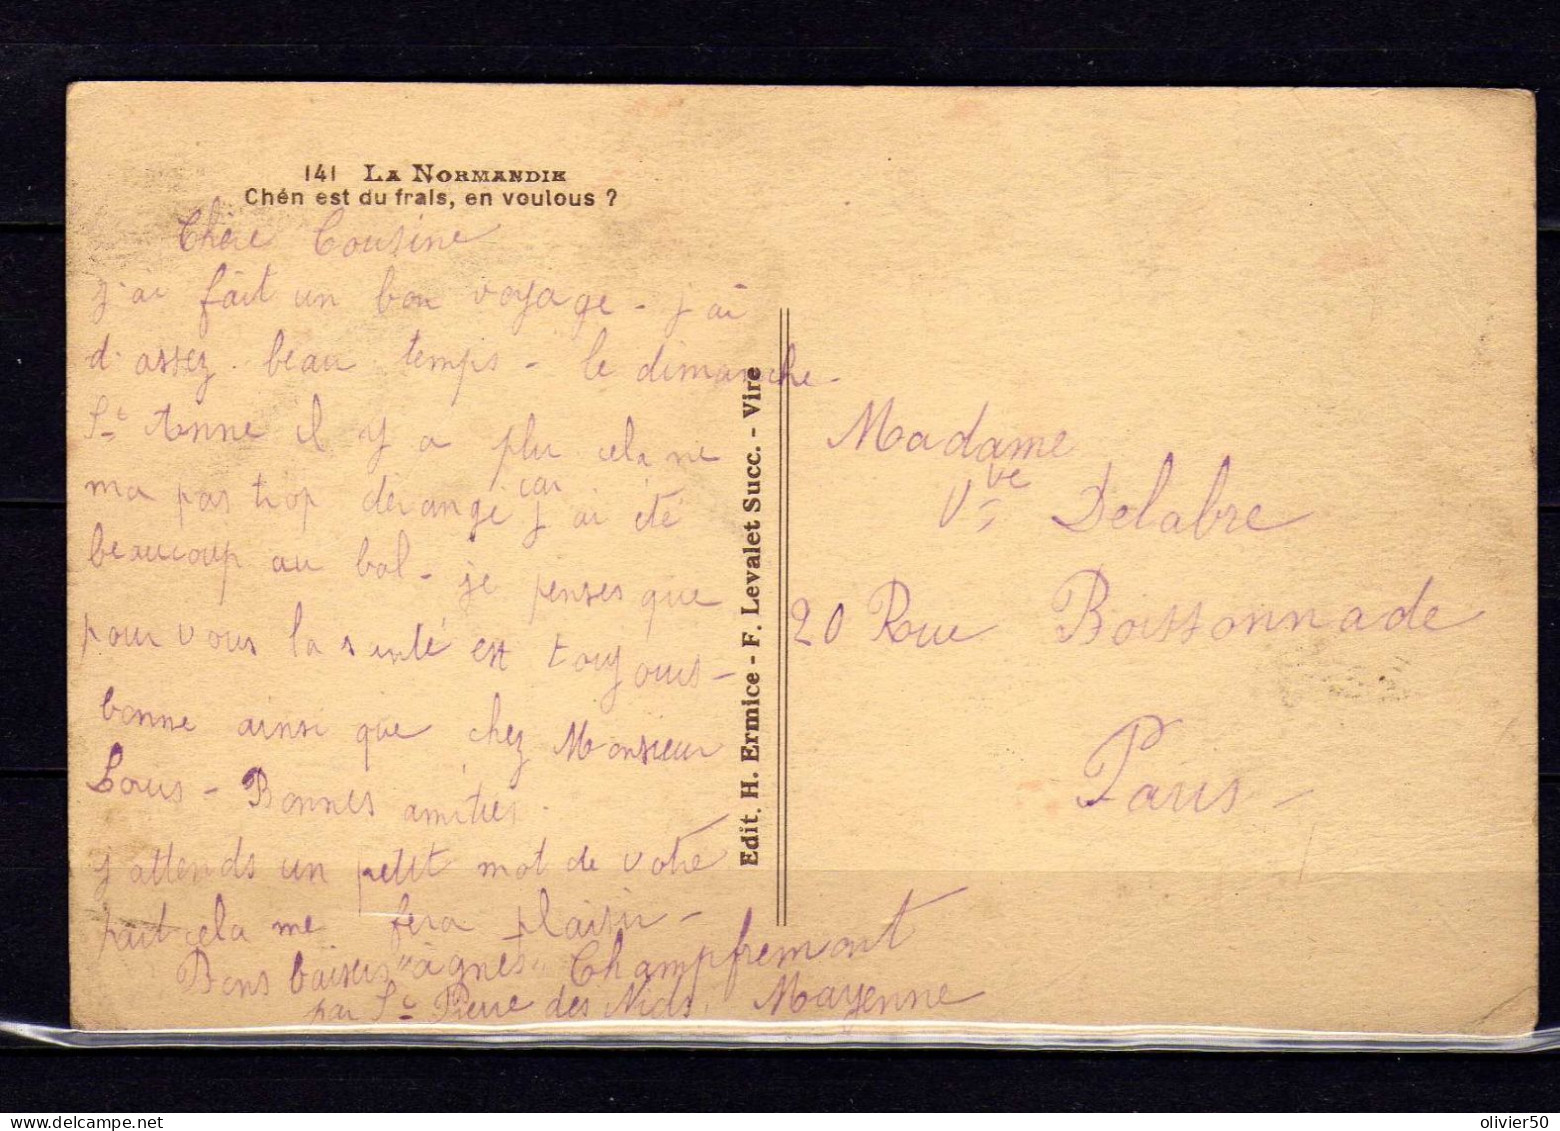 141 LA NORMANDIE
Chén est du frais, en voulous ?
Chère Cousine
j'ai fait un bon voyage - j'ai
d'assez beau temps - le dimanche -
Ste Anne il y a plu cela ne
ma pas trop dérangé car j'ai été
beaucoup au bal - je penses que
pour vous la santé est toujours -
bonne ainsi que chez Monsieur
Louis - Bonnes amitiés.
j'attends un petit mot de votre
part cela me fera plaisir -
Bons baisers "agnès" Champfremont
par St Pierre des Nids. Mayenne
Edit. H. Ermice - F. Levalet Succ. - Vire
Madame
Vve Delabre
20 Rue Boissonnade
Paris -
olivier50